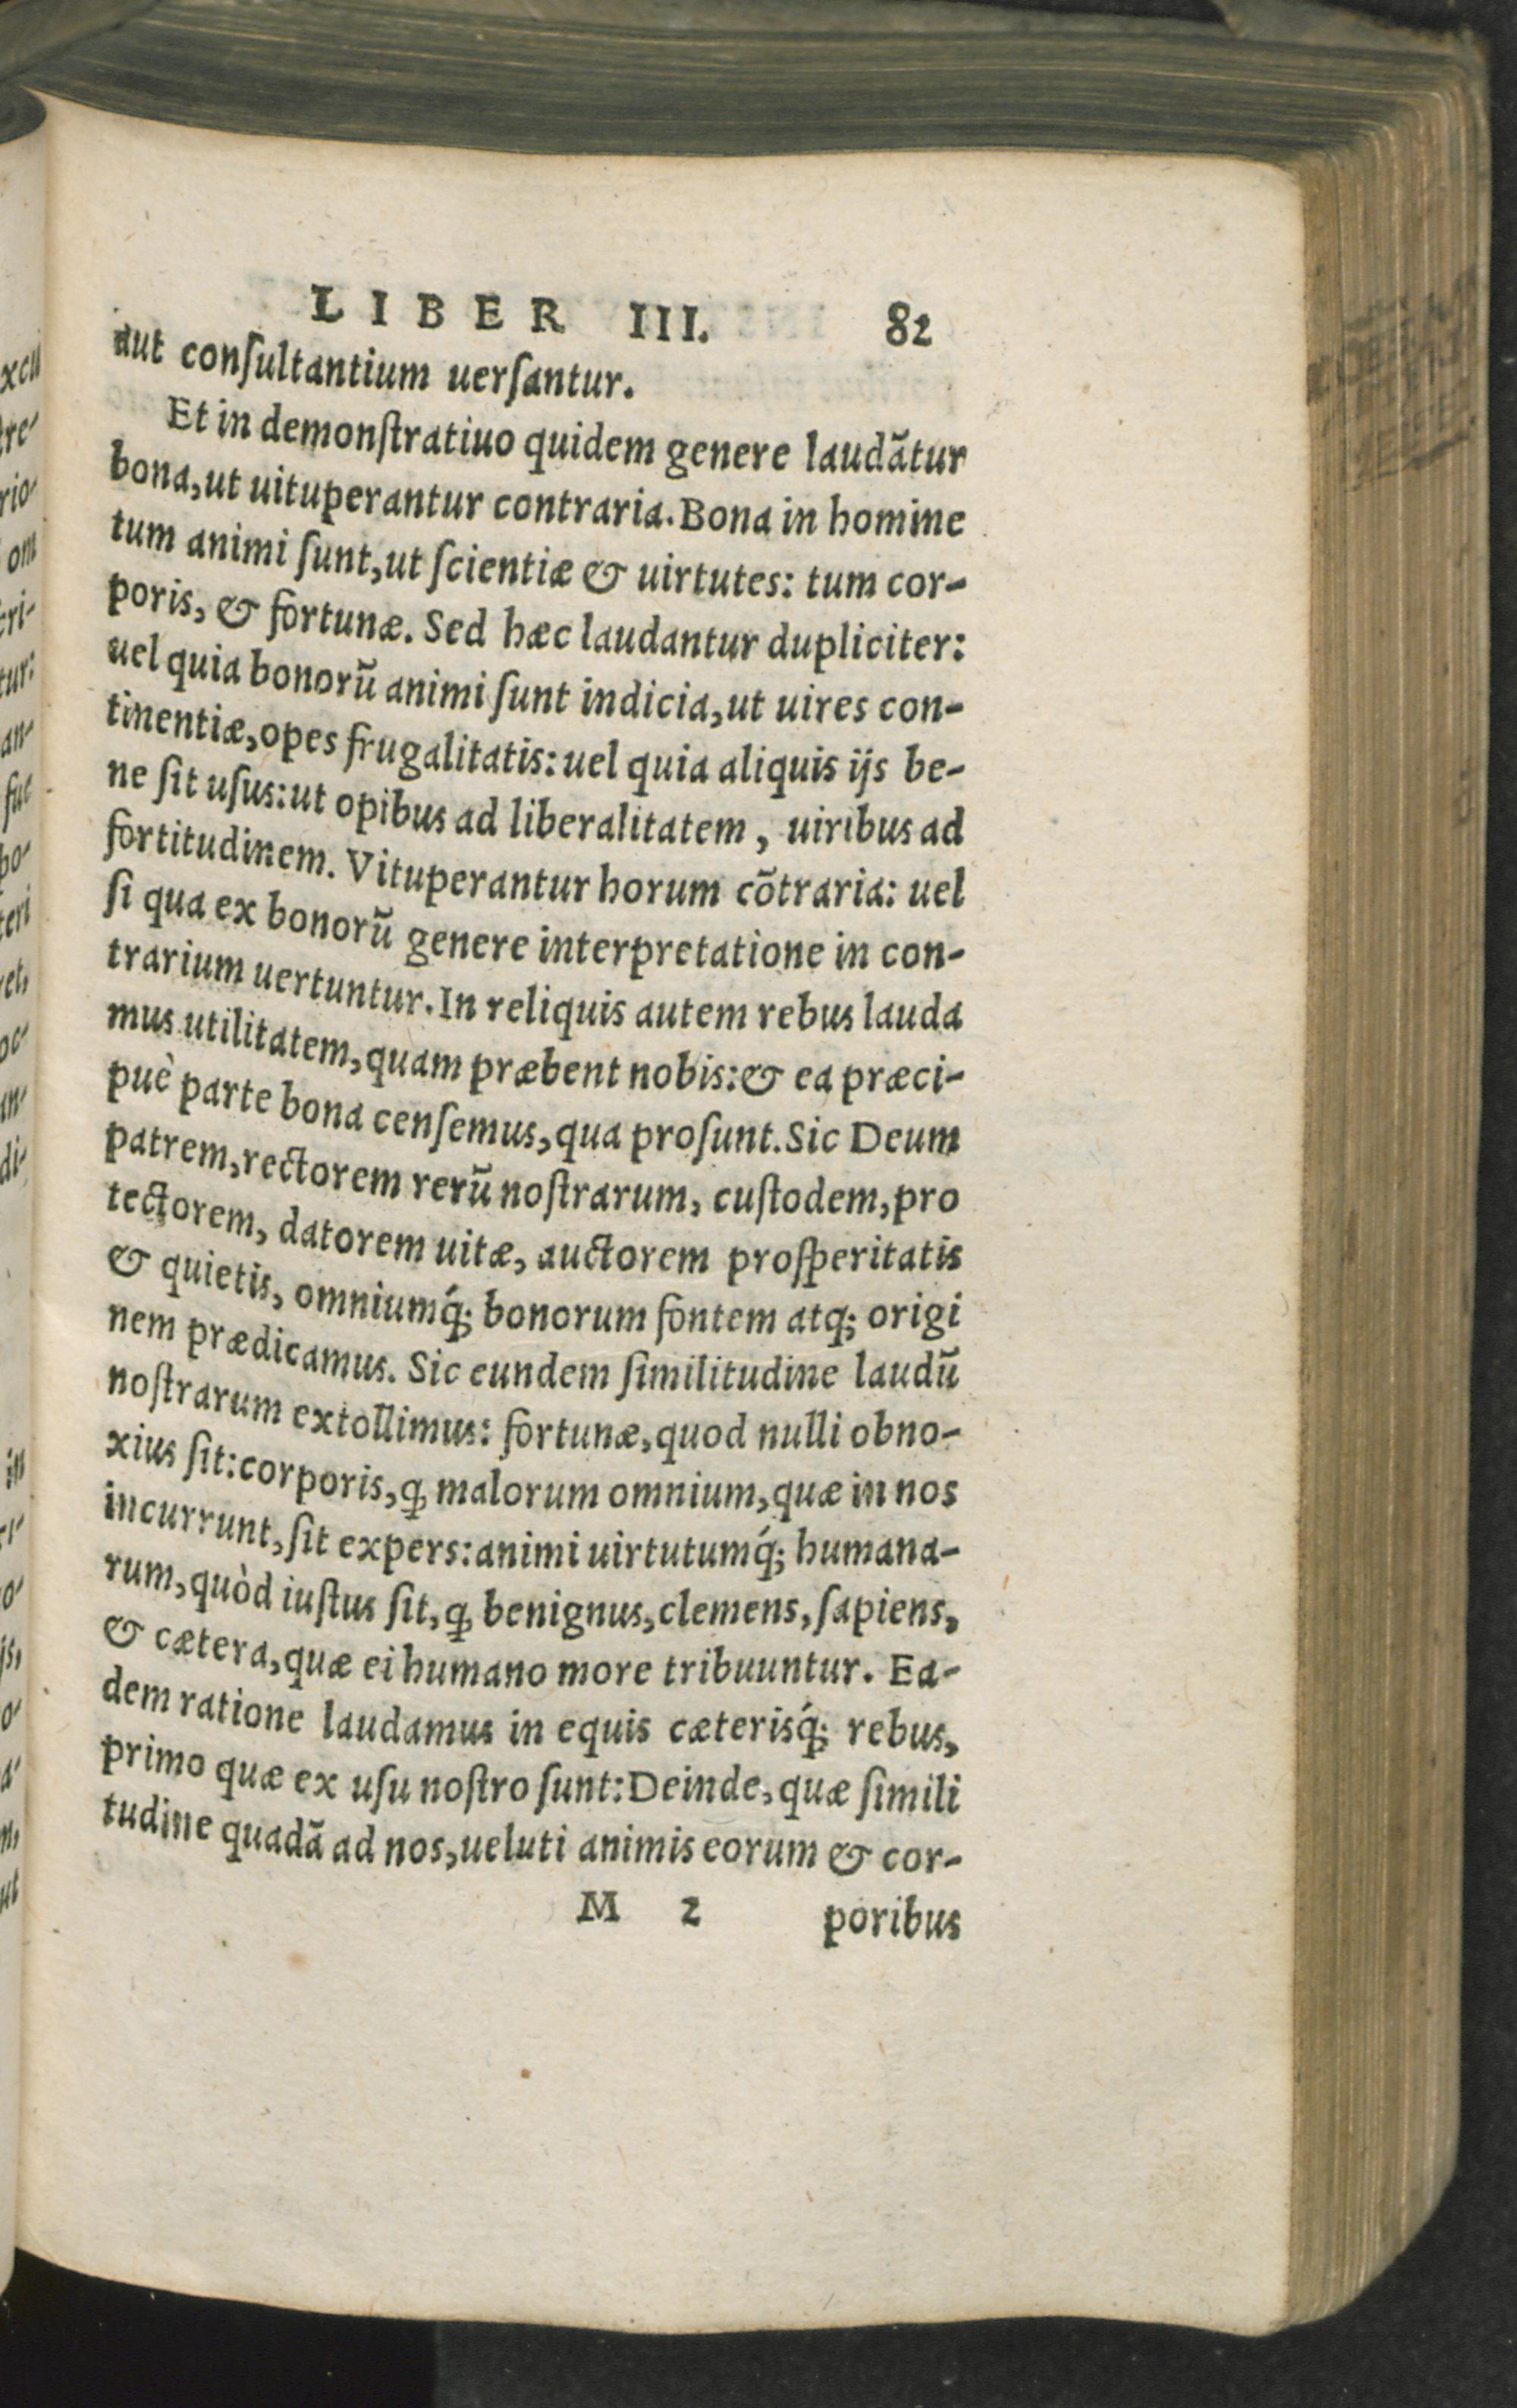 LIBER III. 82
aut conſultantium uerſantur.
Et in demonſtratiuo quidem genere laudãtur
bona, ut uituperantur contraria. Bona in homine
tum animi ſunt, ut ſcientiæ & uirtutes: tum cor-
poris, & fortunæ. Sed hæc laudantur dupliciter:
uel quia bonorũ animi ſunt indicia, ut uires con-
tinentiæ, opes frugalitatis: uel quia aliquis ijs be-
ne ſit uſus: ut opibus ad liberalitatem, uiribus ad
fortitudinem. Vituperantur horum cõtraria: uel
ſi qua ex bonorũ genere interpretatione in con-
trarium uertuntur. In reliquis autem rebus lauda
mus utilitatem, quam præbent nobis: & ea præci-
puè parte bona cenſemus, qua proſunt. Sic Deum
patrem, rectorem rerũ noſtrarum, cuſtodem, pro
tectorem, datorem uitæ, auctorem proſperitatis
& quietis, omniumq́; bonorum fontem atq; origi
nem prædicamus. Sic eundem ſimilitudine laudũ
noſtrarum extollimus: fortunæ, quod nulli obno-
xius ſit: corporis, ꝙ malorum omnium, quæ in nos
incurrunt, ſit expers: animi uirtutumq́; humana-
rum, quòd iuſtus ſit, ꝙ benignus, clemens, ſapiens,
& cætera, quæ ei humano more tribuuntur. Ea-
dem ratione laudamus in equis cæterisq́; rebus,
primo quæ ex uſu noſtro ſunt: Deinde, quæ ſimili
tudine quadã ad nos, ueluti animis eorum & cor-
M 2 poribus